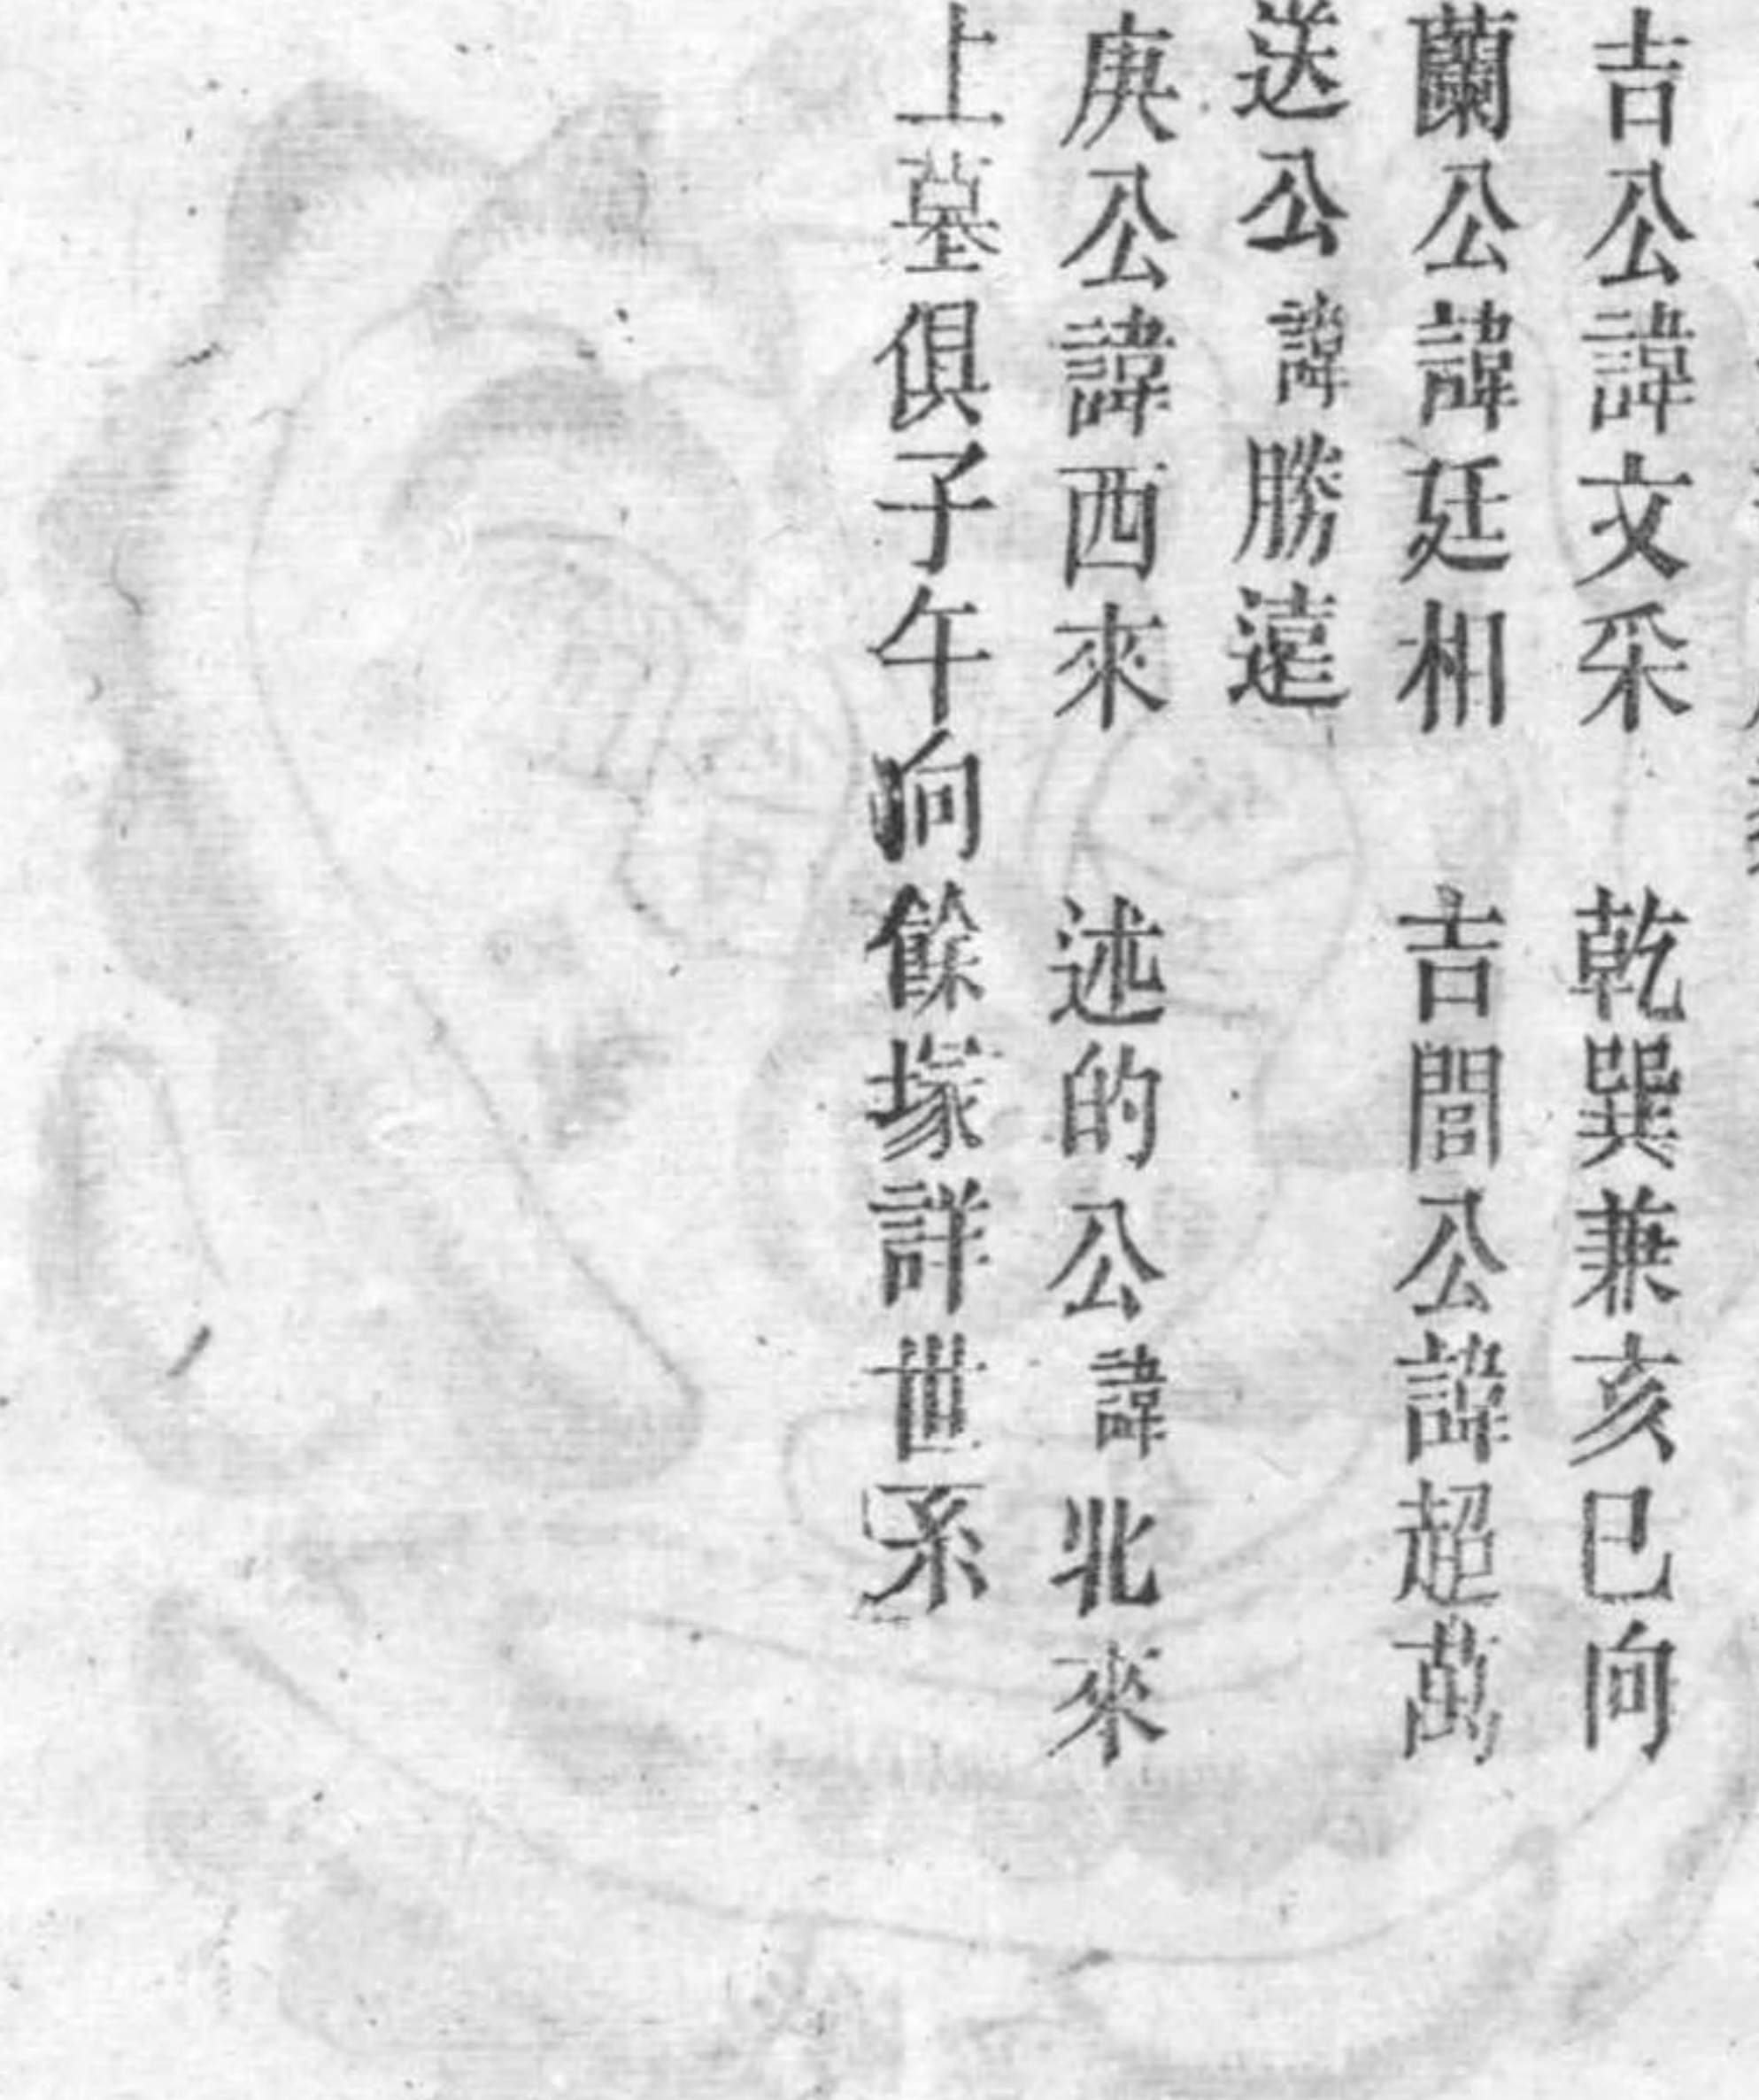 吉公諱文采　乾巽兼亥巳向
蘭公諱廷相　吉閭公諱超萬
送公諱勝遠
庚公諱西來　述的公諱北來
上墓俱子午向餘塚詳世系